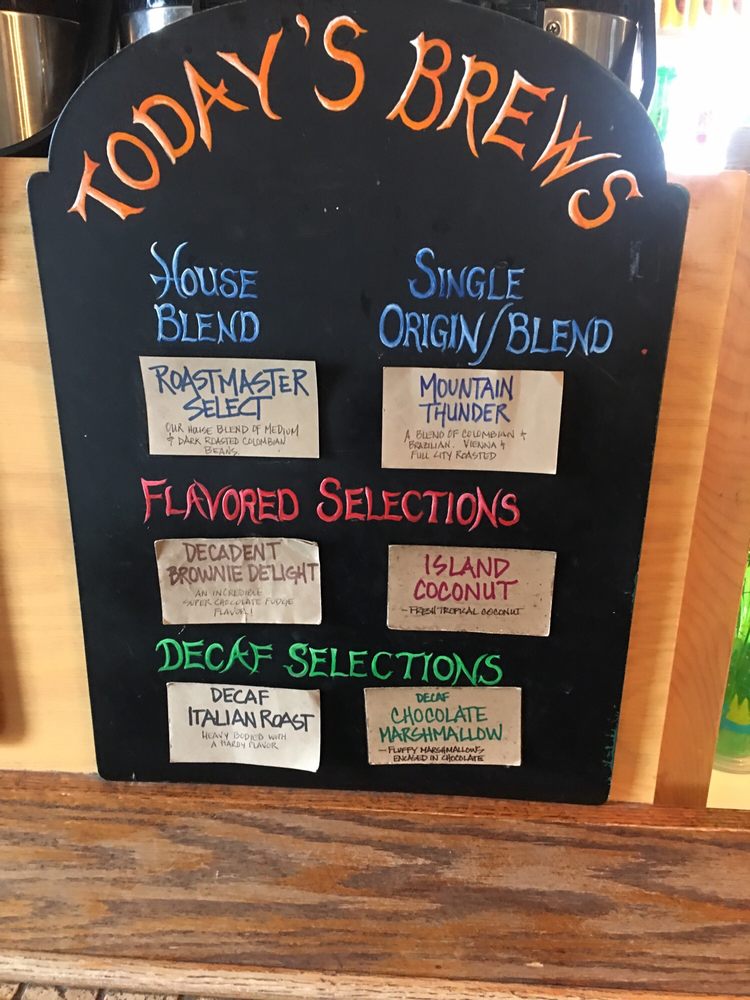 TODAY'S BREWS
HOUSE
BLEND
ROASTMASTER
SELECT
OUR HOUSE BLEND OF MEDIUM
& DARK ROASTED COLOMBIAN
BEANS.
SINGLE
ORIGIN/BLEND
MOUNTAIN
THUNDER
A BLEND OF COLOMBIAN &
BRAZILIAN. VIENNA &
FULL CITY ROASTED
FLAVORED SELECTIONS
DECADENT
BROWNIE DELIGHT
AN INCREDIBLE
SUPER CHOCOLATE FUDGE
FLAVOR!
ISLAND
COCONUT
- FRESH TROPICAL COCONUT
DECAF SELECTIONS
DECAF
ITALIAN ROAST
HEAVY BODIED WITH
A HARDY FLAVOR
DECAF
CHOCOLATE
MARSHMALLOW
- FLUFFY MARSHMALLOWS
ENCASED IN CHOCOLATE